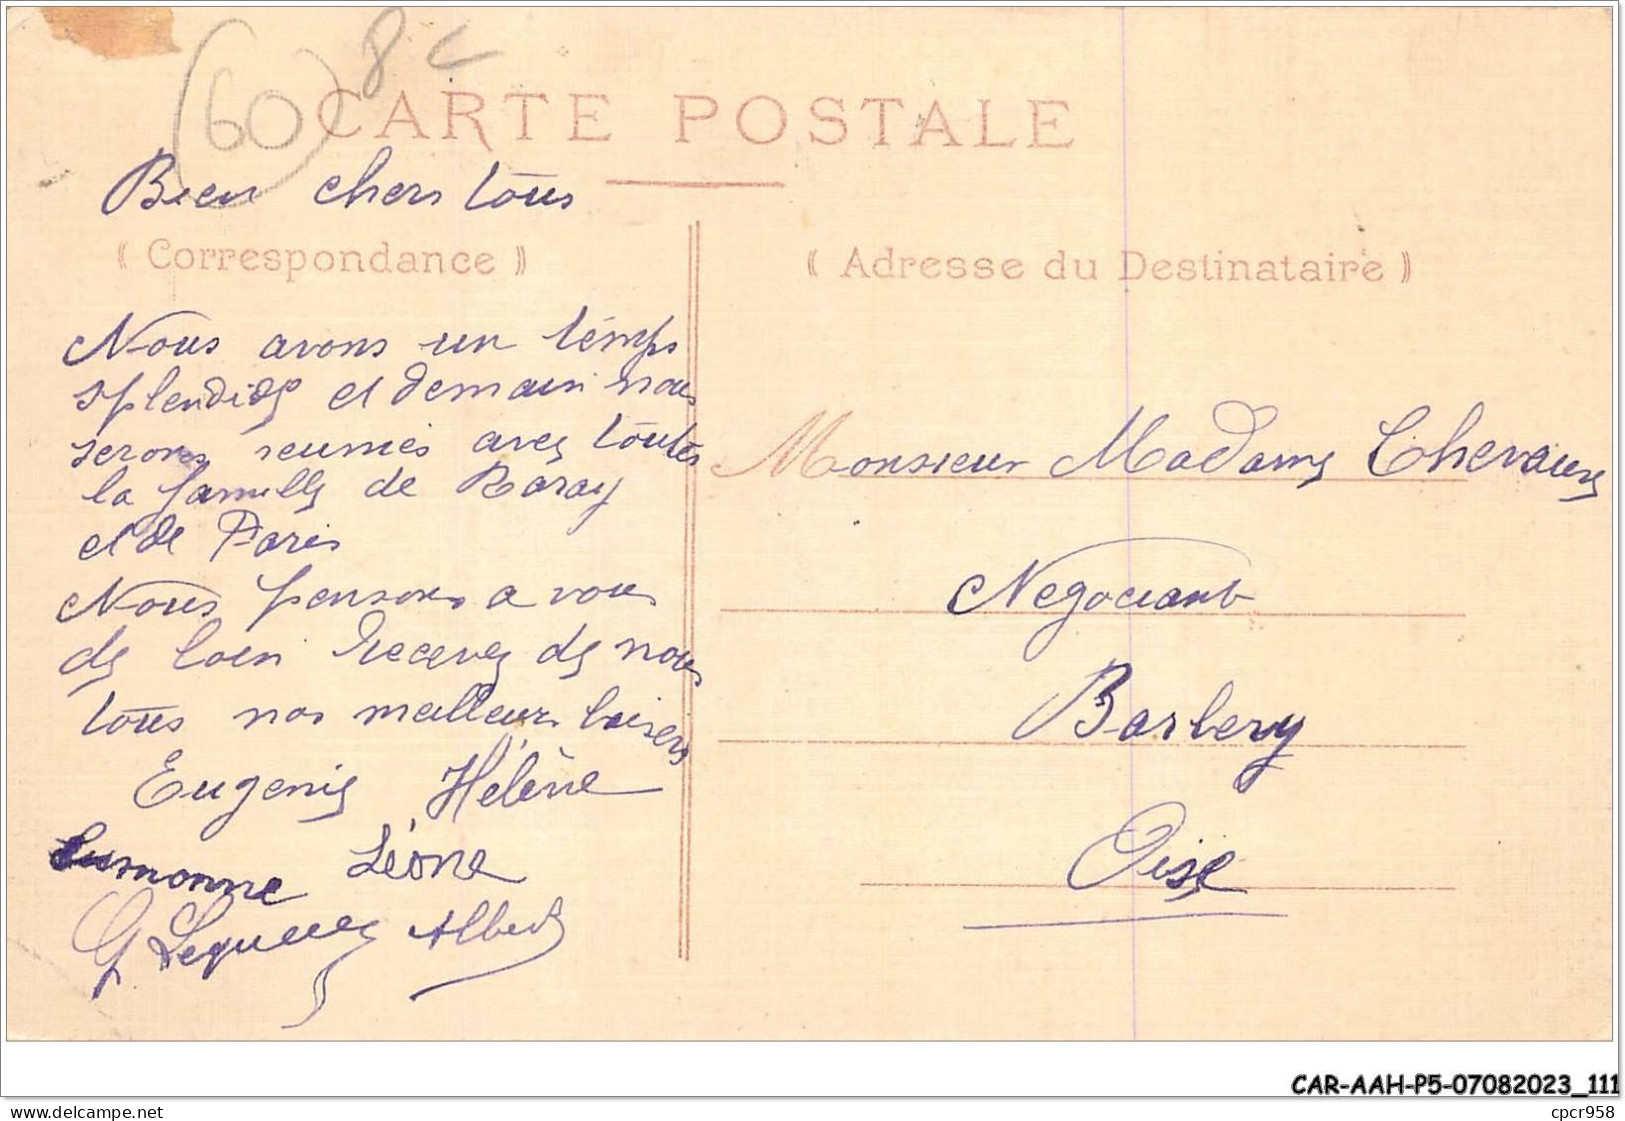 (60) 8 c
CARTE POSTALE
Bien chers tous
« Correspondance »
« Adresse du Destinataire »
Nous avons un temps
splendide et demain nous
serons reunies avec toutes
la famille de Raray
et de Paris
Nous pensons a vous
de loin Recevez de nous
tous nos meilleurs baisers
Eugenie Hélène
Léone
G Albert
Monsieur Madame Chevaux
Negociant
Barbery
Oise
CAR-AAH-P5-07082023_111
www.delcampe.net
cpcr958